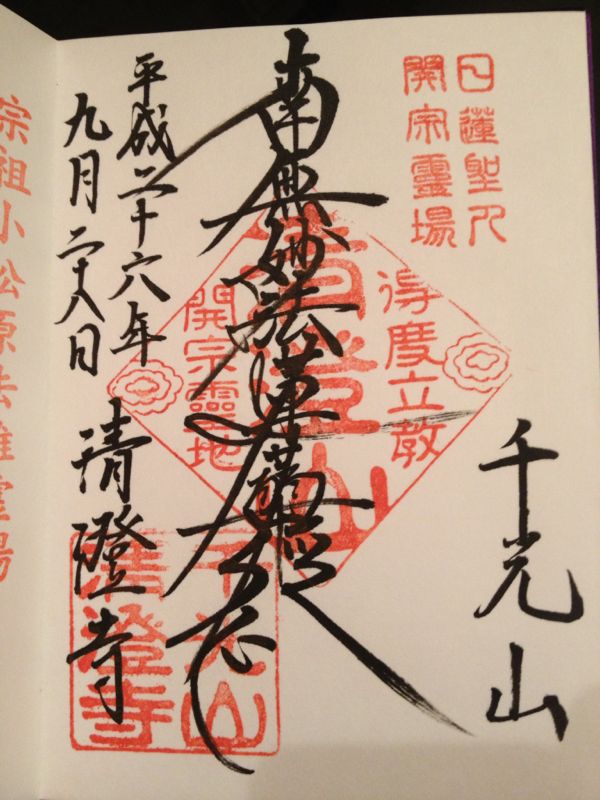 日蓮聖人
開宗霊場
千光山
得度立教
清澄山
開宗霊地
南無妙法蓮華経
平成二十六年
九月二十八日
清澄寺
千光山
清澄寺
宗祖小松原法難霊場